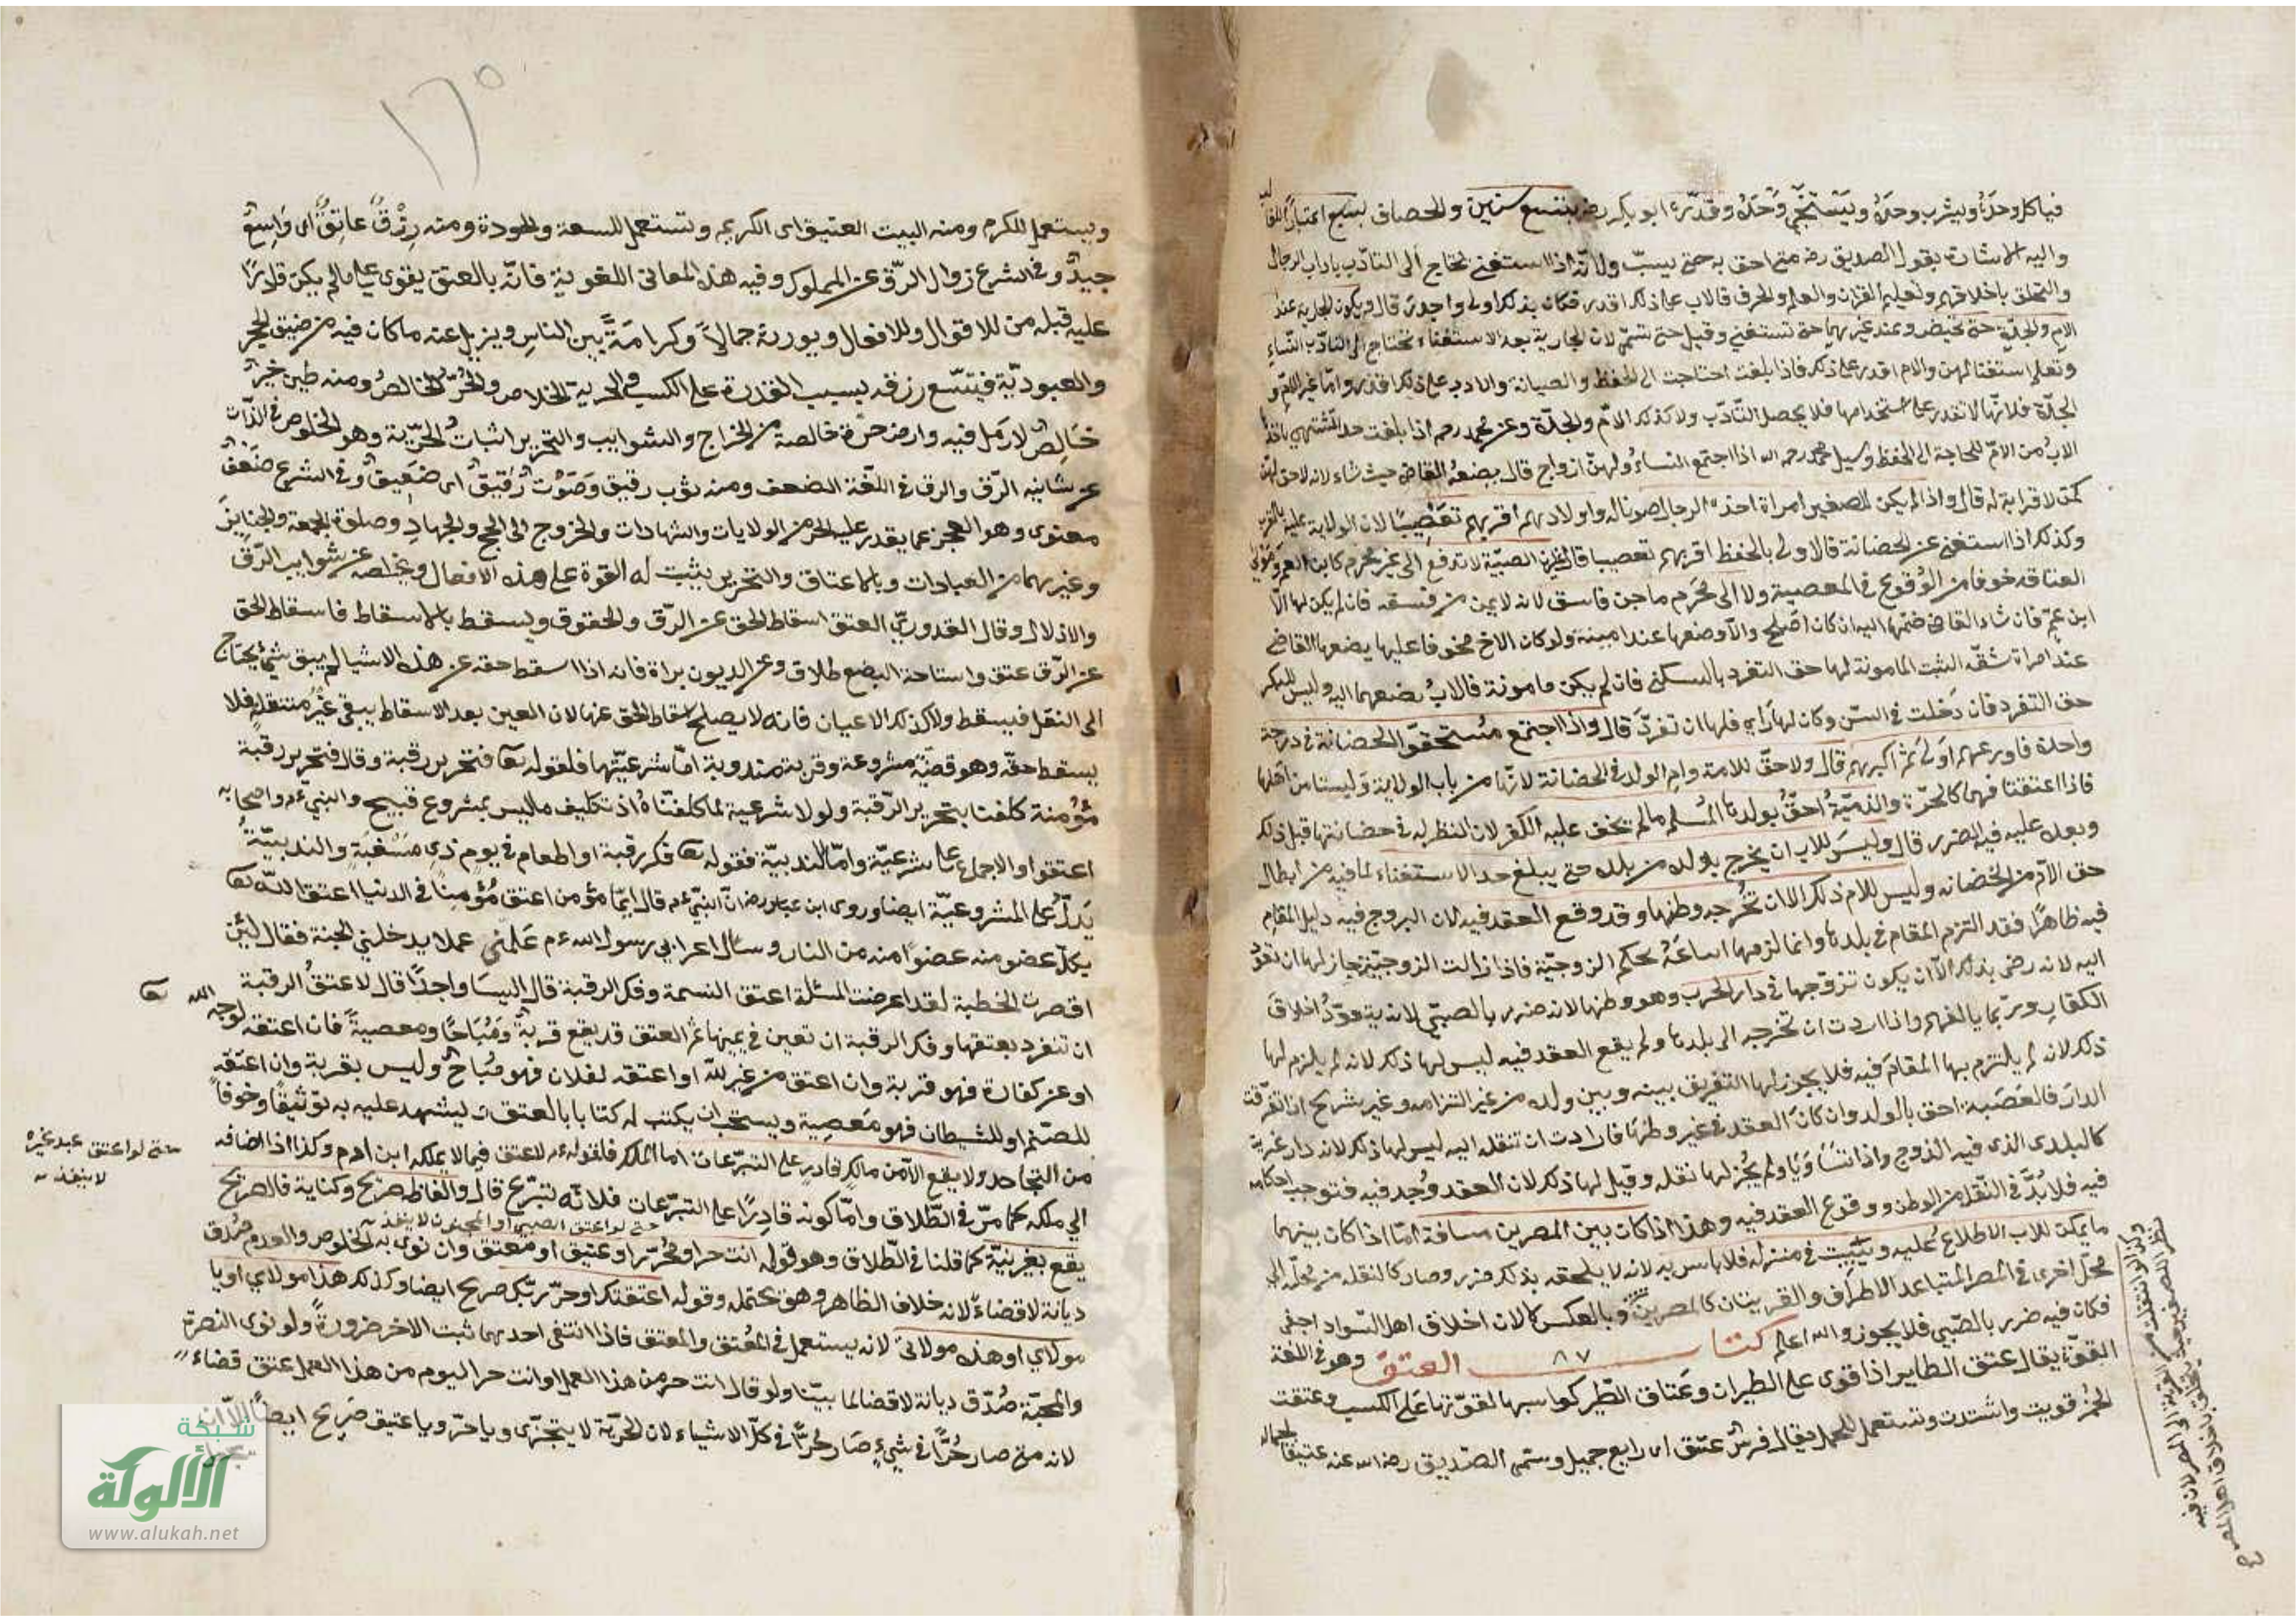 فياكل وحده ويشرب وحده ويستنجي وحده وقدره ابو بكر رضه بتسع سنين والخصاف بسبع اعتبارا للغالب
واليه الاشارة بقول الصديق رضه متى احق به حتى يشب ولانه اذا استغنى يحتاج الى التادب باداب الرجال
والتخلق باخلاقهم وتعليم القران والعلم والحرف قالاب على ذلك اقدر فكان بذلك اولى واجدر قال ويكون الجارية عند
الام والجدة حتى تحيض وعند غيرهما حتى تستغني وقيل حتى تشتهى لان الجارية بعد الاستغناء تحتاج الى التادب النساء
وتعلم استغنائهن والام اقدر على ذلك فاذا بلغت احتاجت الى الحفظ والصيانة والاب على ذلك اقدر واما غير الام و
الجدة فلانها لا تقدر على استخدامها فلا يحصل التادب ولا كذلك الام والجدة وعن محمد رحه اذا بلغت حد المشتهى ياخذها
الاب من الام للحاجة الى الحفظ وسيل محمد رحمه الله اذا اجتمع النساء ولهن ازواج قال يضعه القاضي حيث شاء لانه لا حق لهن
كمن لا قرابة له قال واذا لم يكن للصغير امراة اخذه الرجال صونا له واولادهم اقربهم تعصيبا لان الولاية عليه بالقرب
وكذلك اذا استغنى عن الحضانة فالاولى بالحفظ اقربهم تعصيبا قال غير ان الصبية لا تدفع الى غير محرم كابن العم ومولى
العتاقة خوفا من الوقوع في المعصية ولا الى محرم ماجن فاسق لانه لا يمن من فسقه فان لم يكن لها الا
ابن عم فان شاء القاضي ضمها اليه ان كان اصلح والا وضعها عند امينة ولو كان الاخ مخوفا عليها يضعها القاضي
عند امراة ثقة الثيب المامونة لها حق التفرد بالسكنى فان لم يكن مامونة فالاب يضعهما اليه وليس للبكر
حق التفرد فان دخلت في السن وكان لها راي فلها ان تفرد قال واذا اجتمع مستحقوا الحضانة في درجة
واحدة فاورعهم اولى ثم اكبرهم قال ولا حق للامة وام الولد في الحضانة لانها من باب الولاية وليستا من اهلها
فاذا اعتقتا فهما كالحرة والذمية احق بولدها المسلم مالم يخف عليه الكفر لان النظر له في حضانتها قبل ذلك
وبعده عليه فيه الضرر قال وليس للاب ان يخرج بولده من بلده حتى يبلغ حد الاستغناء لما فيه من ابطال
حق الام من الحضانه وليس للام ذلك الا ان تخرجه وطنها وقد وقع العقد فيه لان التزوج فيه دليل المقام
فيه ظاهرا فقد التزم المقام في بلدها وانما لزمها اتباعه بحكم الزوجية فاذا زالت الزوجية جاز لها ان تعود
اليه لانه رضى بذلك الا ان يكون تزوجها في دار الحرب وهو وطنها لانه ضرر بالصبي لانه يتعود اخلاق
الكفار وربما يالفهم واذا ارادت ان تخرجه الى بلدها ولم يقع العقد فيه ليس لها ذلك لانه لم يلزم لها
ذلك لانه لم يلتزم بها المقام فيه فلا يجوز لها التفريق بينه وبين ولده من غير التزامه وغير شريح اذا تفرقت
الدار فالعصبة احق بالولد وان كان العقد في غير وطنها فارادت ان تنقله اليه ليس لها ذلك لانه دار غربة
كالبلد الذي فيه الزوج واذا تساويا ولم يجز لها نقله وقيل لها ذلك لان العقد وجد فيه فتوجب احكامه
فيه فلا بد في النقل من الوطن ووقوع العقد فيه وهذا اذا كان بين المصرين مسافة اما اذا كان بينهما
ما يمكن للاب الاطلاع عليه ويبيت في منزله فلا باس به لانه لا يلحقه بذلك ضرر وصار كالنقلة من محلة الى
محل اخرى في المصر المتباعد الاطراف والقريتان كالمصرين وبالعكس لا لان اخلاق اهل السواد اجفى
فكان فيه ضرر بالصبي فلا يجوز والله اعلم كتاب ٨٧ العتق وهو في اللغة
القوة يقال عتق الطاير اذا قوى على الطيران وعتاق الطير كواسبها لقوتها على الكسب وعتقت
الخمر قويت واشتدت وتستعمل للجمال يقال فرس عتيق اى رايع جميل وسمى الصديق رضى الله عنه عتيقا لجماله
وكذا لو انتقلت من القرية الى المصر لان فيه
نظر للصغير حيث يتخلق باخلاق اهل المصر
١٦٥
ويستعمل للكرم ومنه البيت العتيق اى الكريم وتستعمل للسعة والجودة ومنه رزق عاتق اى واسع
جيد وفي الشرع زوال الرق عن المملوك وفيه هذه المعاني اللغوية فانه بالعتق يقوى على مالم يكن قادرا
عليه قبله من الاقوال والافعال ويورثه جمالا وكرامة بين الناس ويزيل عنه ما كان فيه من ضيق الحجر
والعبودية فيتسع رزقه بسبب القدرة على الكسب والحرية الخلاص والحر الخالص ومنه طين حر
خالص لا رمل فيه وارض حرة خالصة من الخراج والشوايب والتحرير اثبات الحرية وهو الخلوص في الذات
عن شائبه الرق والرق في اللغة الضعف ومنه ثوب رقيق وصوت رقيق اى ضعيف وفي الشرع ضعف
معنوى وهو العجز عما يقدر عليه الحر من الولايات والشهادات والخروج الى الحج والجهاد وصلوة الجمعة والجنايز
وغيرهما من العبادات وبالاعتاق والتحرير يثبت له القوة على هذه الافعال ويخلصه عن شوايب الرق
والاذلال وقال القدوري العتق اسقاط الحق عن الرق والحقوق ويسقط بالاسقاط فاسقاط الحق
عن الرق عتق واستاحة البضع طلاق وعن الديون براة فانه اذا اسقط حقه عن هذه الاشيا لم يبق شئ يحتاج
الى النقل فيسقط ولا كذلك الاعيان فانه لا يصلح اسقاط الحق عنها لان العين بعد الاسقاط يبقى غير منتقلة فلا
يسقط حقه وهو قضية مشروعة وقربة مندوبة اما شرعيتها فلقوله تعا فتحرير رقبة وقال فتحرير رقبة
مؤمنة كلفنا بتحرير الرقبة ولولا شرعية لما كلفناه اذ تكليف ماليس بمشروع قبيح والنبي ءم واصحابه
اعتقوا والاجماع على شرعية واما الندبية فقوله تعا فك رقبة او اطعام في يوم ذي مسغبة والندبية
يدل على المشروعية ايضا وروى ابن عباس رضه ان النبي ءم قال ايما مؤمن اعتق مؤمنا في الدنيا اعتق الله تعا
بكل عضو منه عضوا منه من النار وسئال اعرابي رسول الله ءم علمني عملا يدخلني الجنة فقال لئن
اقصرت الخطبة لقد اعرضت المسئلة اعتق النسمة وفك الرقبة قال اليسا واحدا قال لا عتق الرقبة
ان تنفرد بعتقها وفك الرقبة ان تعين في ثمنها ثم العتق قد يقع قربة ومباحا ومعصية فان اعتقه لوجه الله تعا
او عن كفارة فهو قربة وان اعتق من غير لله او اعتقه لفلان فهو مباح وليس بقربة وان اعتقه
للصنم او للشيطان فهو معصية ويستحب ان يكتب له كتابا بالعتق ليشهد عليه به توثيقا وخوفا
من التجاحد ولا يقع الا من مالك قادر على التبرعات اما الملك فلقوله ءم لا عتق فيما لا يملكه ابن ادم وكذا اذا اضافه
حتى لو اعتق عبد غيره
لا ينفذ
الى ملكه كما مر في الطلاق واما كونه قادرا على التبرعات فلانه تبرع قال والفاظه صريح وكناية فالصريح
حتى لو اعتق الصبي او المجنون لا ينفذ
يقع بغير نية كما قلنا في الطلاق وهو قوله انت حر او محرر او عتيق او معتق وان نوى به الخلوص والقدم صدق
ديانة لا قضاء لانه خلاف الظاهر وهو يحتمله وقوله اعتقتك او حررتك صريح ايضا وكذلك هذا مولاي او يا
مولاي او هذه مولاتي لانه يستعمل في المعتق والمعتق فاذا انتفى احدهما ثبت الاخر ضرورة ولو نوى النصرة
والمحبة صدق ديانة لا قضا لما بينا ولو قال انت حر من هذا العمل او انت حر اليوم من هذا العمل عتق قضاء
لانه متى صار حرا في شيء صار حرا في كل الاشياء لان الحرية لا يتجزى ويا حر ويا عتيق صريح ايضا الا ان
شبكة
الألوكة
www.alukah.net